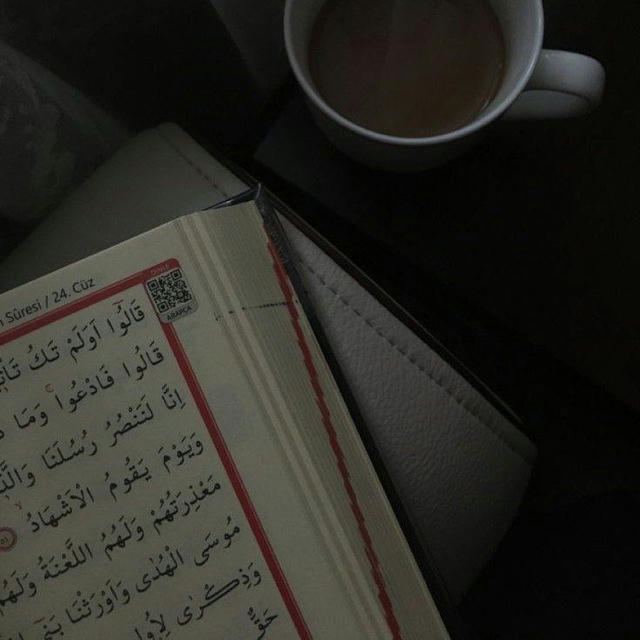 Sûresi / 24. Cüz
DİNLE
ARAPÇA
قَالُٓوا اَوَلَمْ تَكُ
قَالُوا فَادْعُوا وَمَا
اِنَّا لَنَنْصُرُ رُسُلَنَا
وَيَوْمَ يَقُومُ الْاَشْهَادُ
مَعْذِرَتُهُمْ وَلَهُمُ اللَّعْنَةُ وَلَهُمْ
مُوسَى الْهُدٰى وَاَوْرَثْنَا
وَذِكْرٰى لِاُو